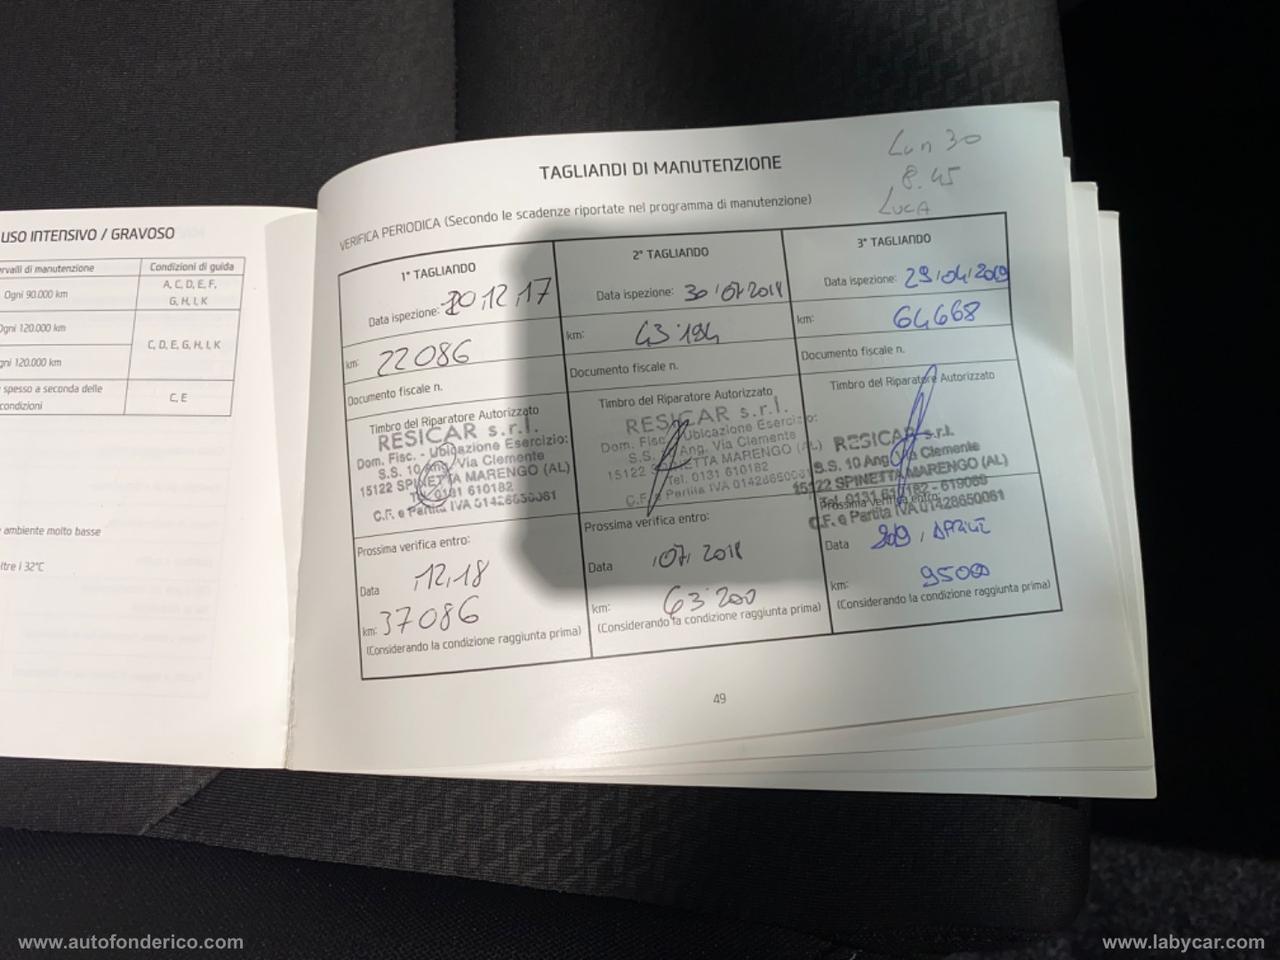 USO INTENSIVO / GRAVOSO
ervalli di manutenzione
Condizioni di guida
Ogni 90.000 km
A, C, D, E, F,
G, H, I, K
Ogni 120.000 km
C, D, E, G, H, I, K
gni 120.000 km
spesso a seconda delle
condizioni
C, E
ambiente molto basse
ltre i 32°C
TAGLIANDI DI MANUTENZIONE
Lun 30
8.45
LUCA
VERIFICA PERIODICA (Secondo le scadenze riportate nel programma di manutenzione)
1° TAGLIANDO
Data ispezione: 20,12,17
km: 22086
Documento fiscale n.
Timbro del Riparatore Autorizzato
RESICAR s.r.l.
Dom. Fisc. - Ubicazione Esercizio:
S.S. 10 Ang. Via Clemente
15122 SPINETTA MARENGO (AL)
Tel. 0131 610182
C.F. e Partita IVA 01428650061
Prossima verifica entro:
Data 12,18
km: 37086
(Considerando la condizione raggiunta prima)
2° TAGLIANDO
Data ispezione: 30/07/2018
km: 43.194
Documento fiscale n.
Timbro del Riparatore Autorizzato
RESICAR s.r.l.
Dom. Fisc. - Ubicazione Esercizio:
S.S. 10 Ang. Via Clemente
15122 SPINETTA MARENGO (AL)
Tel. 0131 610182
C.F. e Partita IVA 01428650061
Prossima verifica entro:
Data ,07, 2018
km: 63.200
(Considerando la condizione raggiunta prima)
3° TAGLIANDO
Data ispezione: 29/04/2019
km: 64668
Documento fiscale n.
Timbro del Riparatore Autorizzato
RESICAR s.r.l.
S.S. 10 Ang. Via Clemente
15122 SPINETTA MARENGO (AL)
Tel. 0131 610182 - 619069
C.F. e Partita IVA 01428650061
Prossima verifica entro:
Data APRILE
km: 95000
(Considerando la condizione raggiunta prima)
49
www.autofonderico.com
www.labycar.com